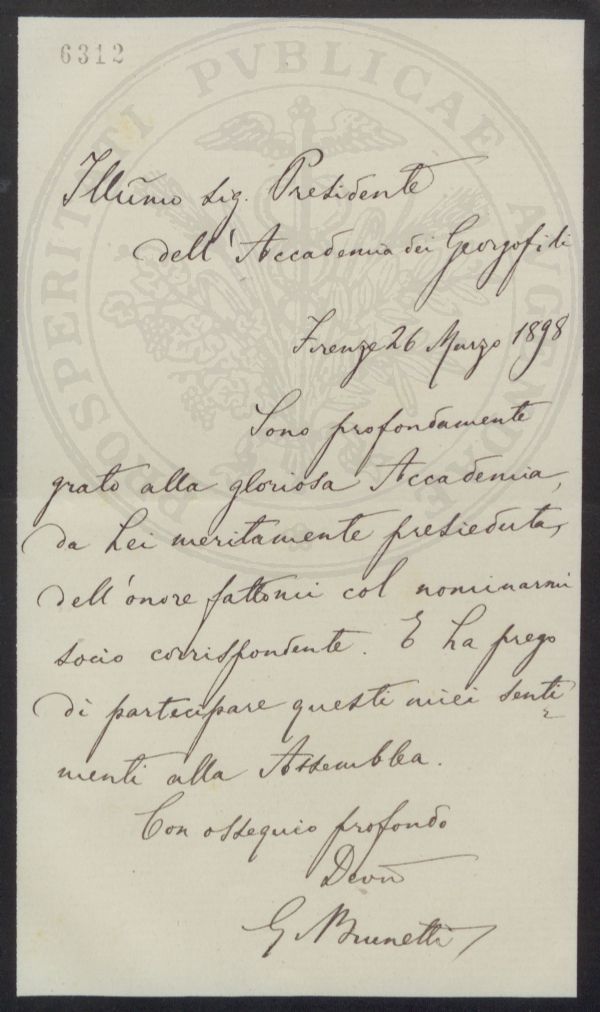 6312
PROSPERITATI PVBLICAE AVGENDAE
Illũmo Sig. Presidente
dell'Accademia dei Georgofili
Firenze 26 Marzo 1898
Sono profondamente
grato alla gloriosa Accademia,
da Lei meritamente presieduta,
dell'onore fattomi col nominarmi
socio corrispondente. E La prego
di partecipare questi miei senti
menti alla Assemblea.
Con ossequio profondo
Devm̃o
G. Brunetti